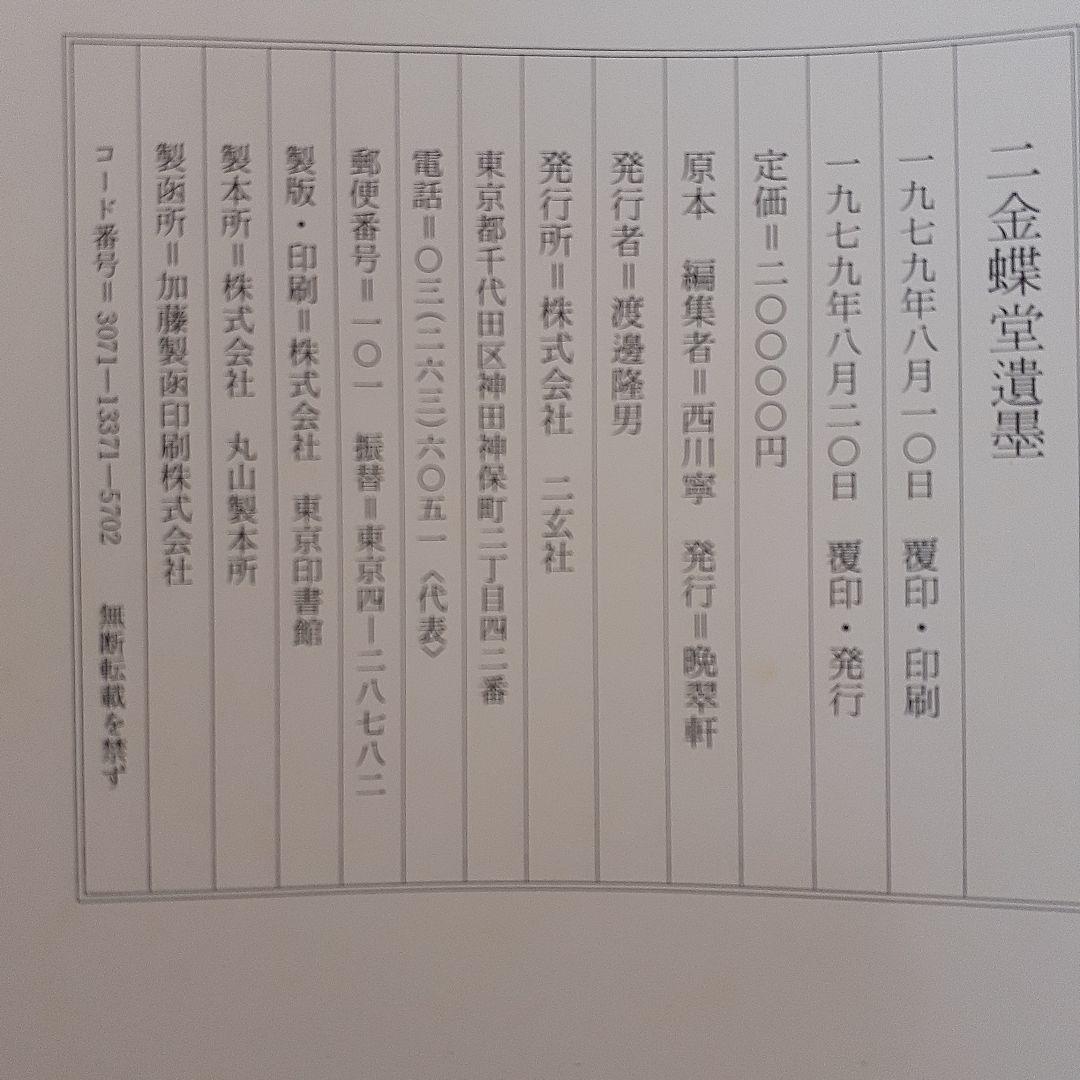 二金蝶堂遺墨
一九七九年八月一〇日　覆印・印刷
一九七九年八月二〇日　覆印・発行
定価＝二〇〇〇〇円
原本　編集者＝西川寧　発行＝晩翠軒
発行者＝渡邊隆男
発行所＝株式会社　二玄社
東京都千代田区神田神保町二丁目四二番
電話＝〇三（二六三）六〇五一〈代表〉
郵便番号＝一〇一　振替＝東京四ー二八七八二
製版・印刷＝株式会社　東京印書館
製本所＝株式会社　丸山製本所
製函所＝加藤製函印刷株式会社
コード番号＝3071―13371―5702　無断転載を禁ず